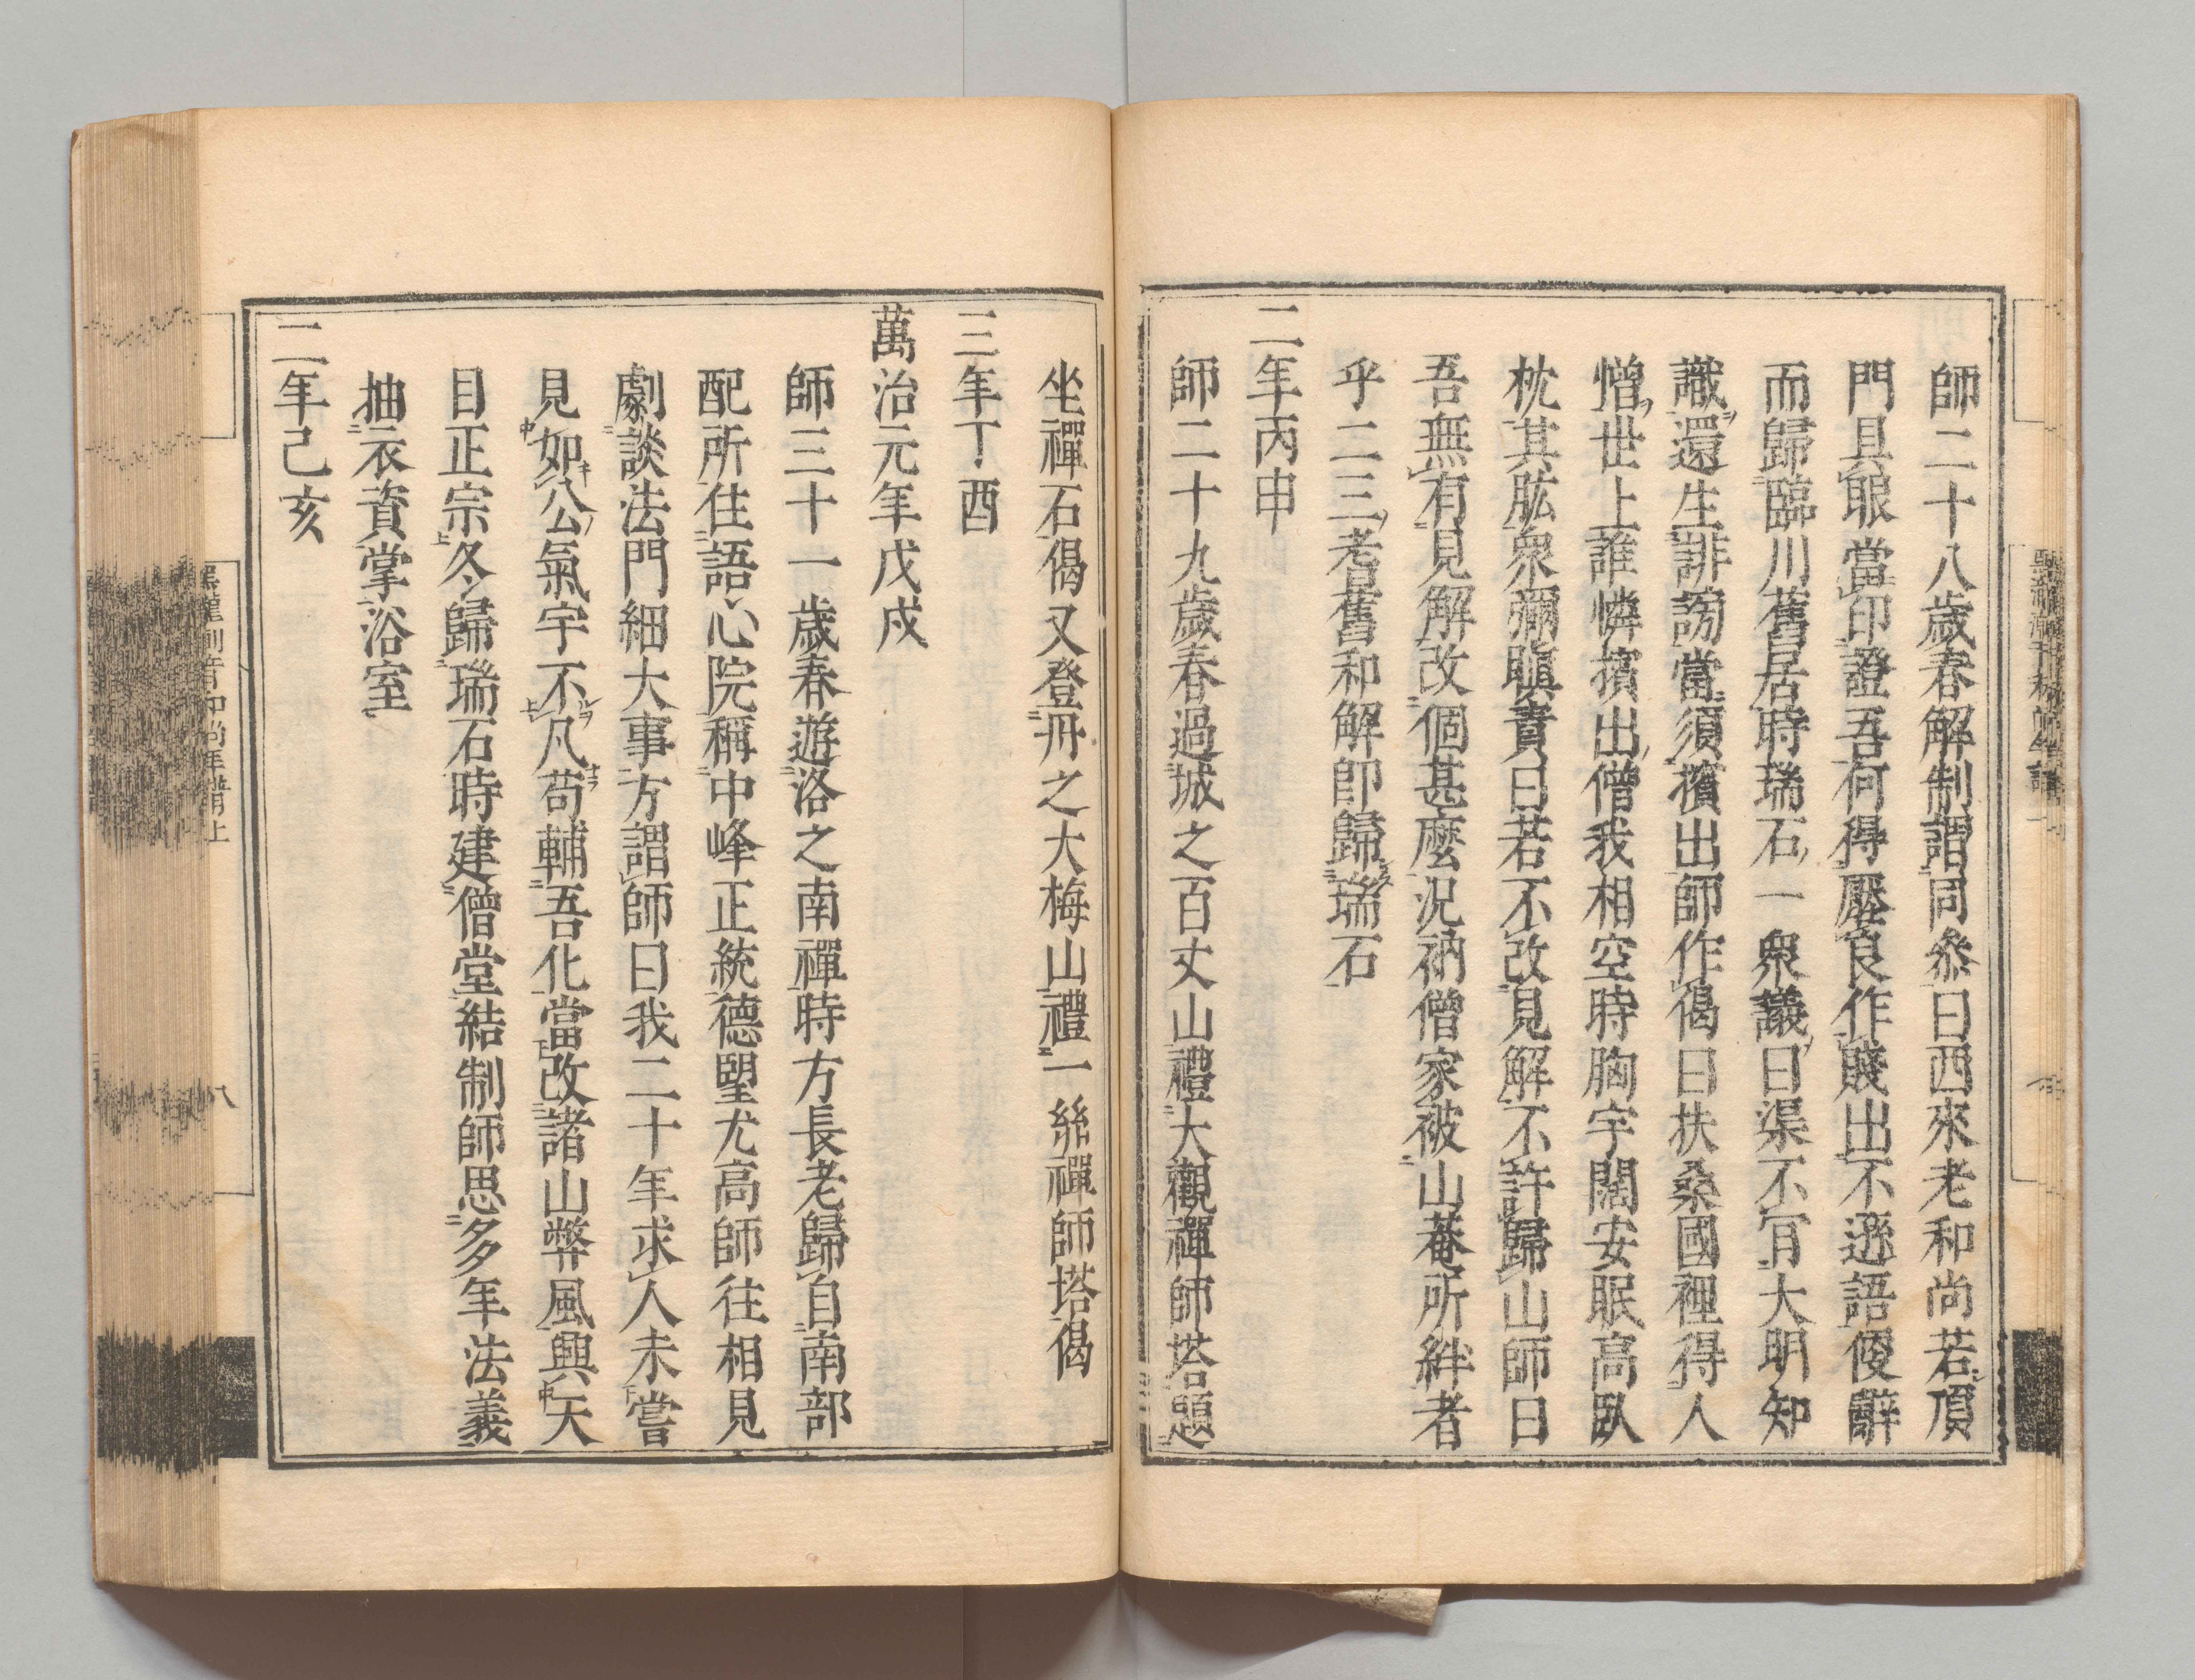 師二十八歲春解制謂同叅曰西來老和尚若頂
門具眼當印證吾何得壓良作賤出不遜語傻辭
而歸臨川舊居時瑞石一衆議曰渠不肎大明知
識還生誹謗當須擯出師作偈曰扶桑國裡得人
憎世上誰憐擯出僧我相空時胸宇闊安眠高臥
枕其肱衆彌瞋責曰若不改見解不許歸山師曰
吾無有見解改個甚麼況衲僧家被山菴所絆者
乎二三老舊和解即歸瑞石
二年丙申
師二十九歲春過城之百丈山禮大觀禪師塔題
坐禪石偈又登丹之大梅山禮一絲禪師塔偈
三年丁酉
萬治元年戊戌
師三十一歲春遊洛之南禪時方長老歸自南部
配所住語心院稱中峰正統德望尤高師往相見
劇談法門細大事方謂師曰我二十年求人未嘗
見如公氣宇不凡苟輔吾化當改諸山弊風興天
目正宗冬歸瑞石時建僧堂結制師思多年法義
抽衣資掌浴室
二年己亥
八